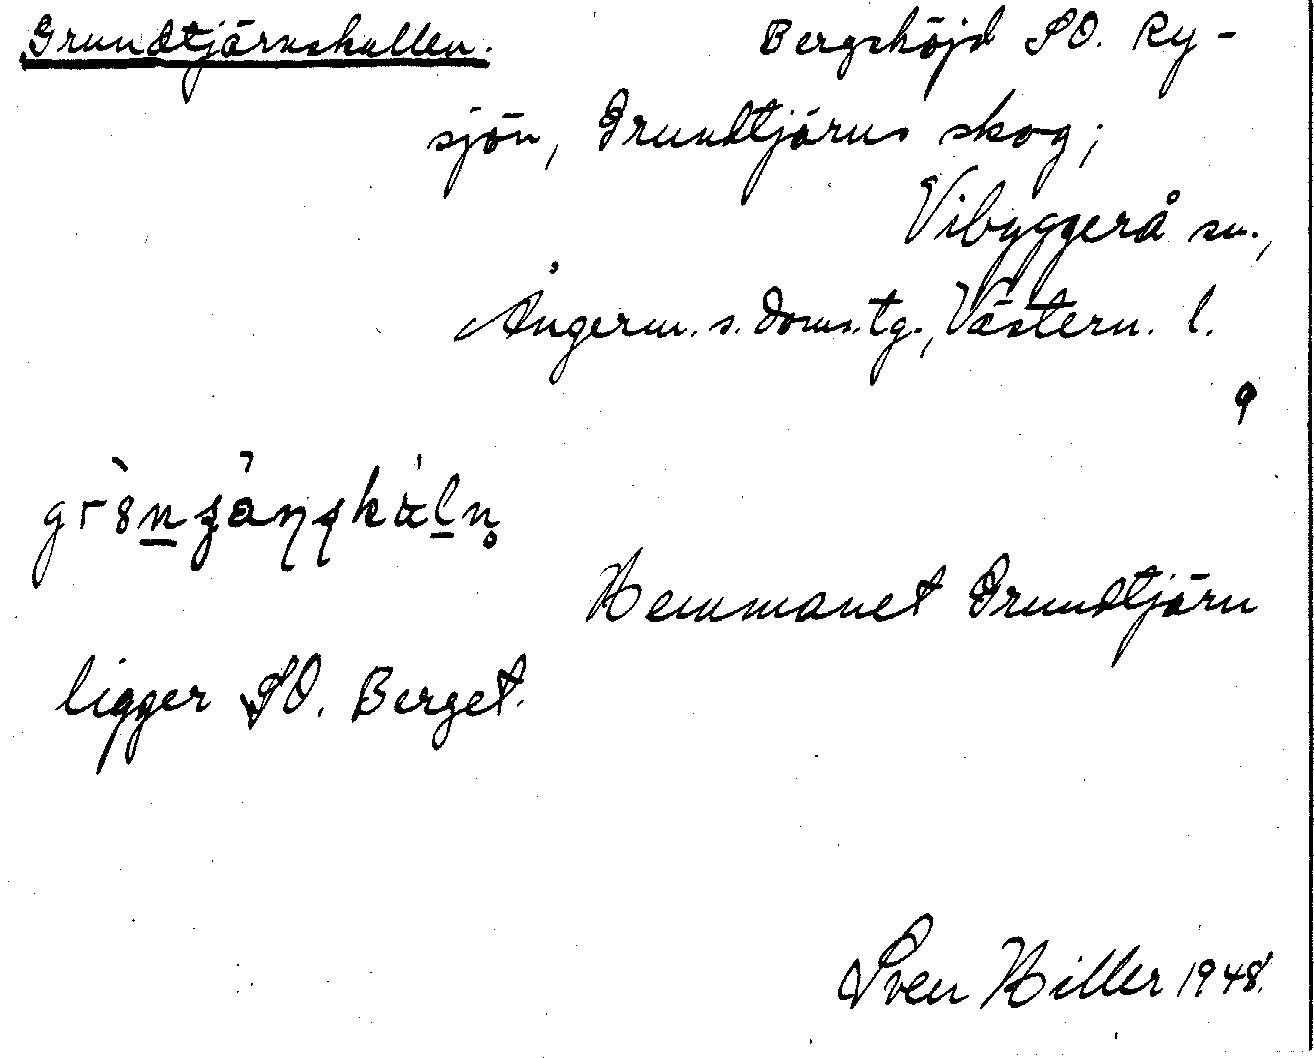 Grundtjärnskullen. Bergshöjd SO. Ry-
sjön, Grundtjärns skog;
Vibyggerå sn.,
Ångerm. s. doms.tg., Västern. l.
9
Hemmanet Grundtjärn
ligger SO. Berget.
Sven Hiller 1948.